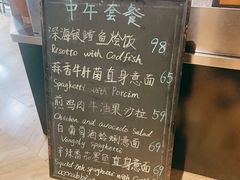 中午套餐
深海银鳕鱼烩饭 98
Resotto with Codfish
蒜香牛肝菌直身意面 65
Spaghetti with Porcini
煎鸡肉牛油果沙拉 59
Chicken and avocado Salad
白葡萄酒蛤蜊意面 69
Vongoly Spaghetti
辛辣番茄墨鱼直身意面 69
Squid Ink Spaghetti with